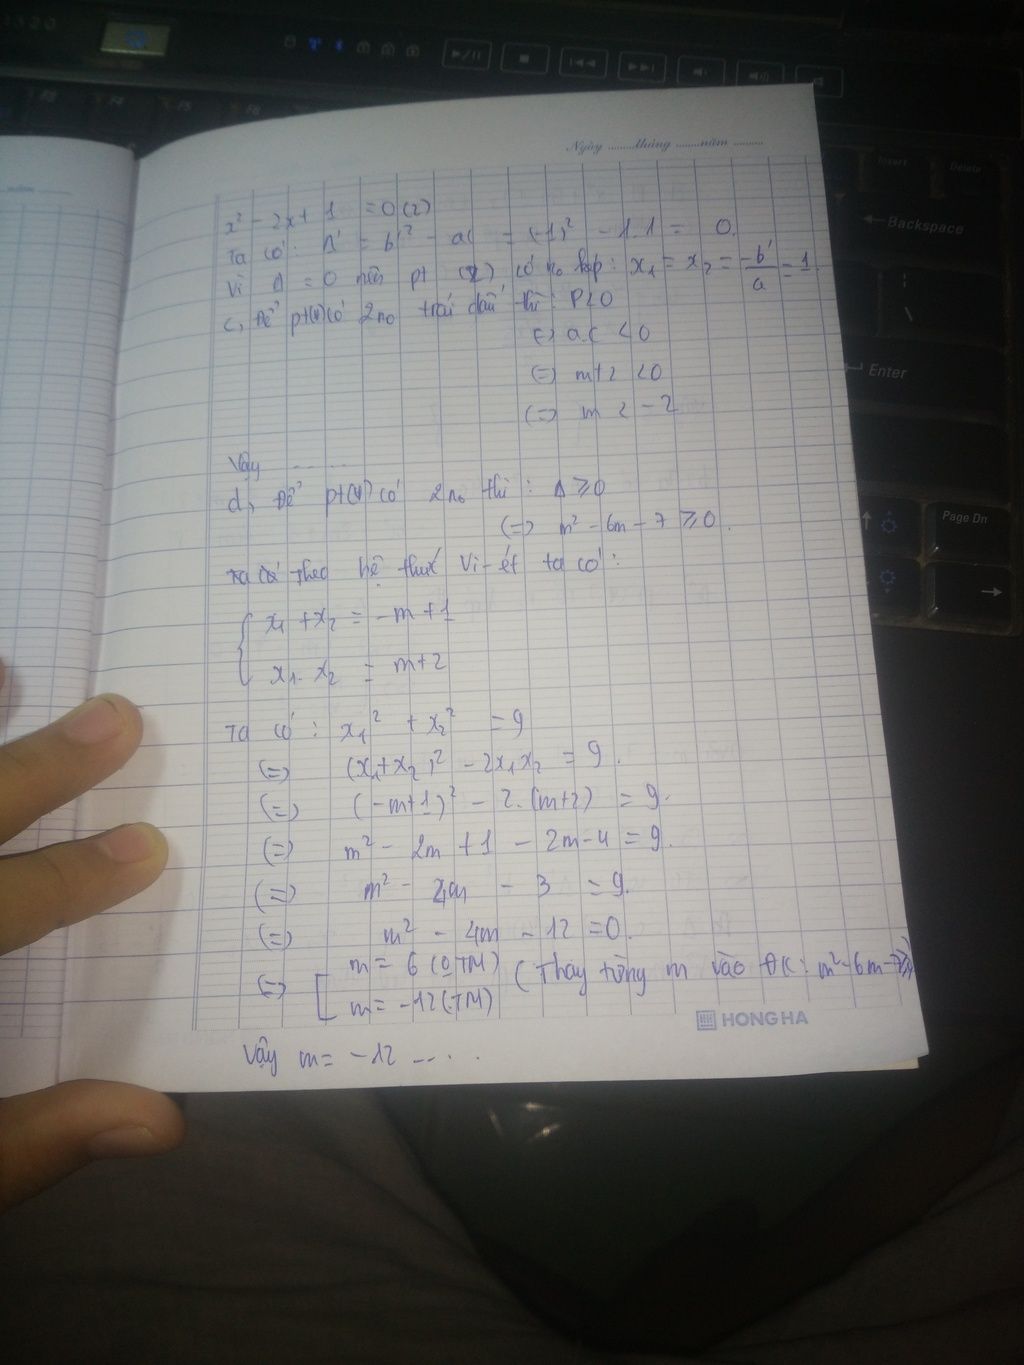 Ngày ........tháng .......năm .........
x² - 2x + 1 = 0 (2)
Ta có: Δ' = b'² - ac = (-1)² - 1.1 = 0.
Vì Δ' = 0 nên pt (2) có no kép: x₁ = x₂ = -b'/a = 1.
c, Để pt(1) có 2no trái dấu thì: P<0
(=) a.c <0
(=) m+2 <0
(=) m < -2
Vậy .....
d, Để pt(1) có 2no thì: Δ ≥ 0
(=) m² - 6m - 7 ≥ 0.
Theo hệ thức Vi-ét ta có:
x₁ + x₂ = -m + 1
x₁. x₂ = m+2
Ta có: x₁² + x₂² = 9
(=) (x₁+x₂)² - 2x₁x₂ = 9.
(=) (-m+1)² - 2.(m+2) = 9.
(=) m² - 2m + 1 - 2m - 4 = 9.
(=) m² - 4m - 3 = 9.
(=) m² - 4m - 12 = 0.
(=) m = 6 (0 TM) (Thay từng m vào ĐK: m² - 6m - 7≥0)
m = -12 (TM)
HONG HA
Vậy m = -12 ....
Insert
Delete
Backspace
Enter
Page Dn